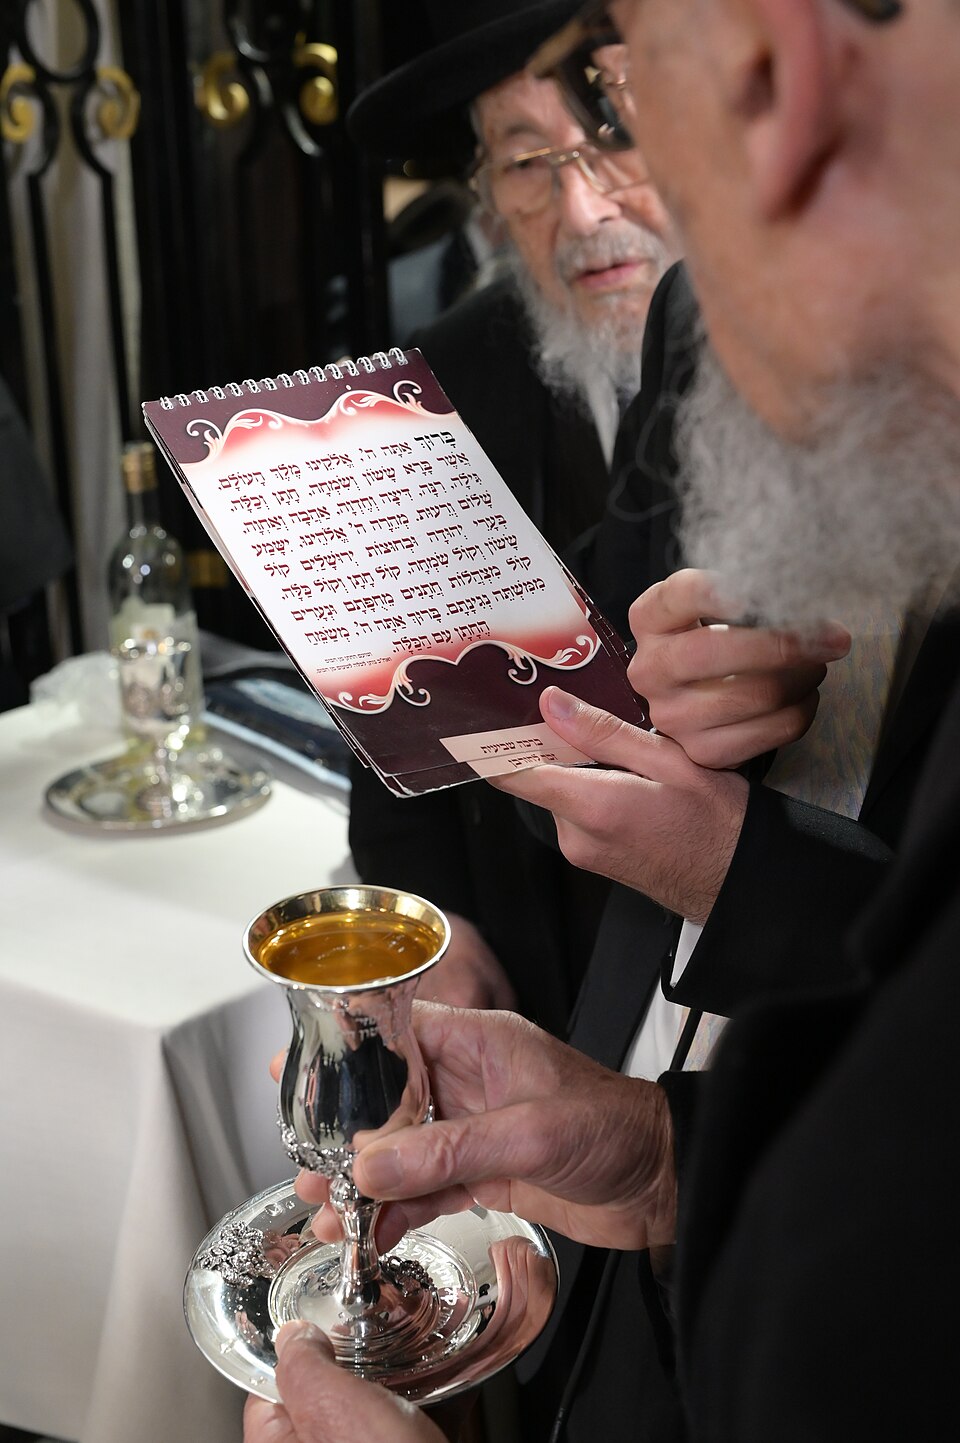 בָּרוּךְ אַתָּה ה', אֱלֹקֵינוּ מֶלֶךְ הָעוֹלָם
אֲשֶׁר בָּרָא שָׂשׂוֹן וְשִׂמְחָה, חָתָן וְכַלָּה,
גִּילָה רִנָּה, דִּיצָה וְחֶדְוָה, אַהֲבָה וְאַחֲוָה,
שָׁלוֹם וְרֵעוּת. מְהֵרָה ה' אֱלֹקֵינוּ, יִשָּׁמַע
בְּעָרֵי יְהוּדָה וּבְחוּצוֹת יְרוּשָׁלַיִם קוֹל
שָׂשׂוֹן וְקוֹל שִׂמְחָה, קוֹל חָתָן וְקוֹל כַּלָּה,
קוֹל מִצְהֲלוֹת חֲתָנִים מֵחֻפָּתָם וּנְעָרִים
מִמִּשְׁתֵּה נְגִינָתָם. בָּרוּךְ אַתָּה ה', מְשַׂמֵּחַ
הֶחָתָן עִם הַכַּלָּה.
ברכה שביעית
זכר לחורבן